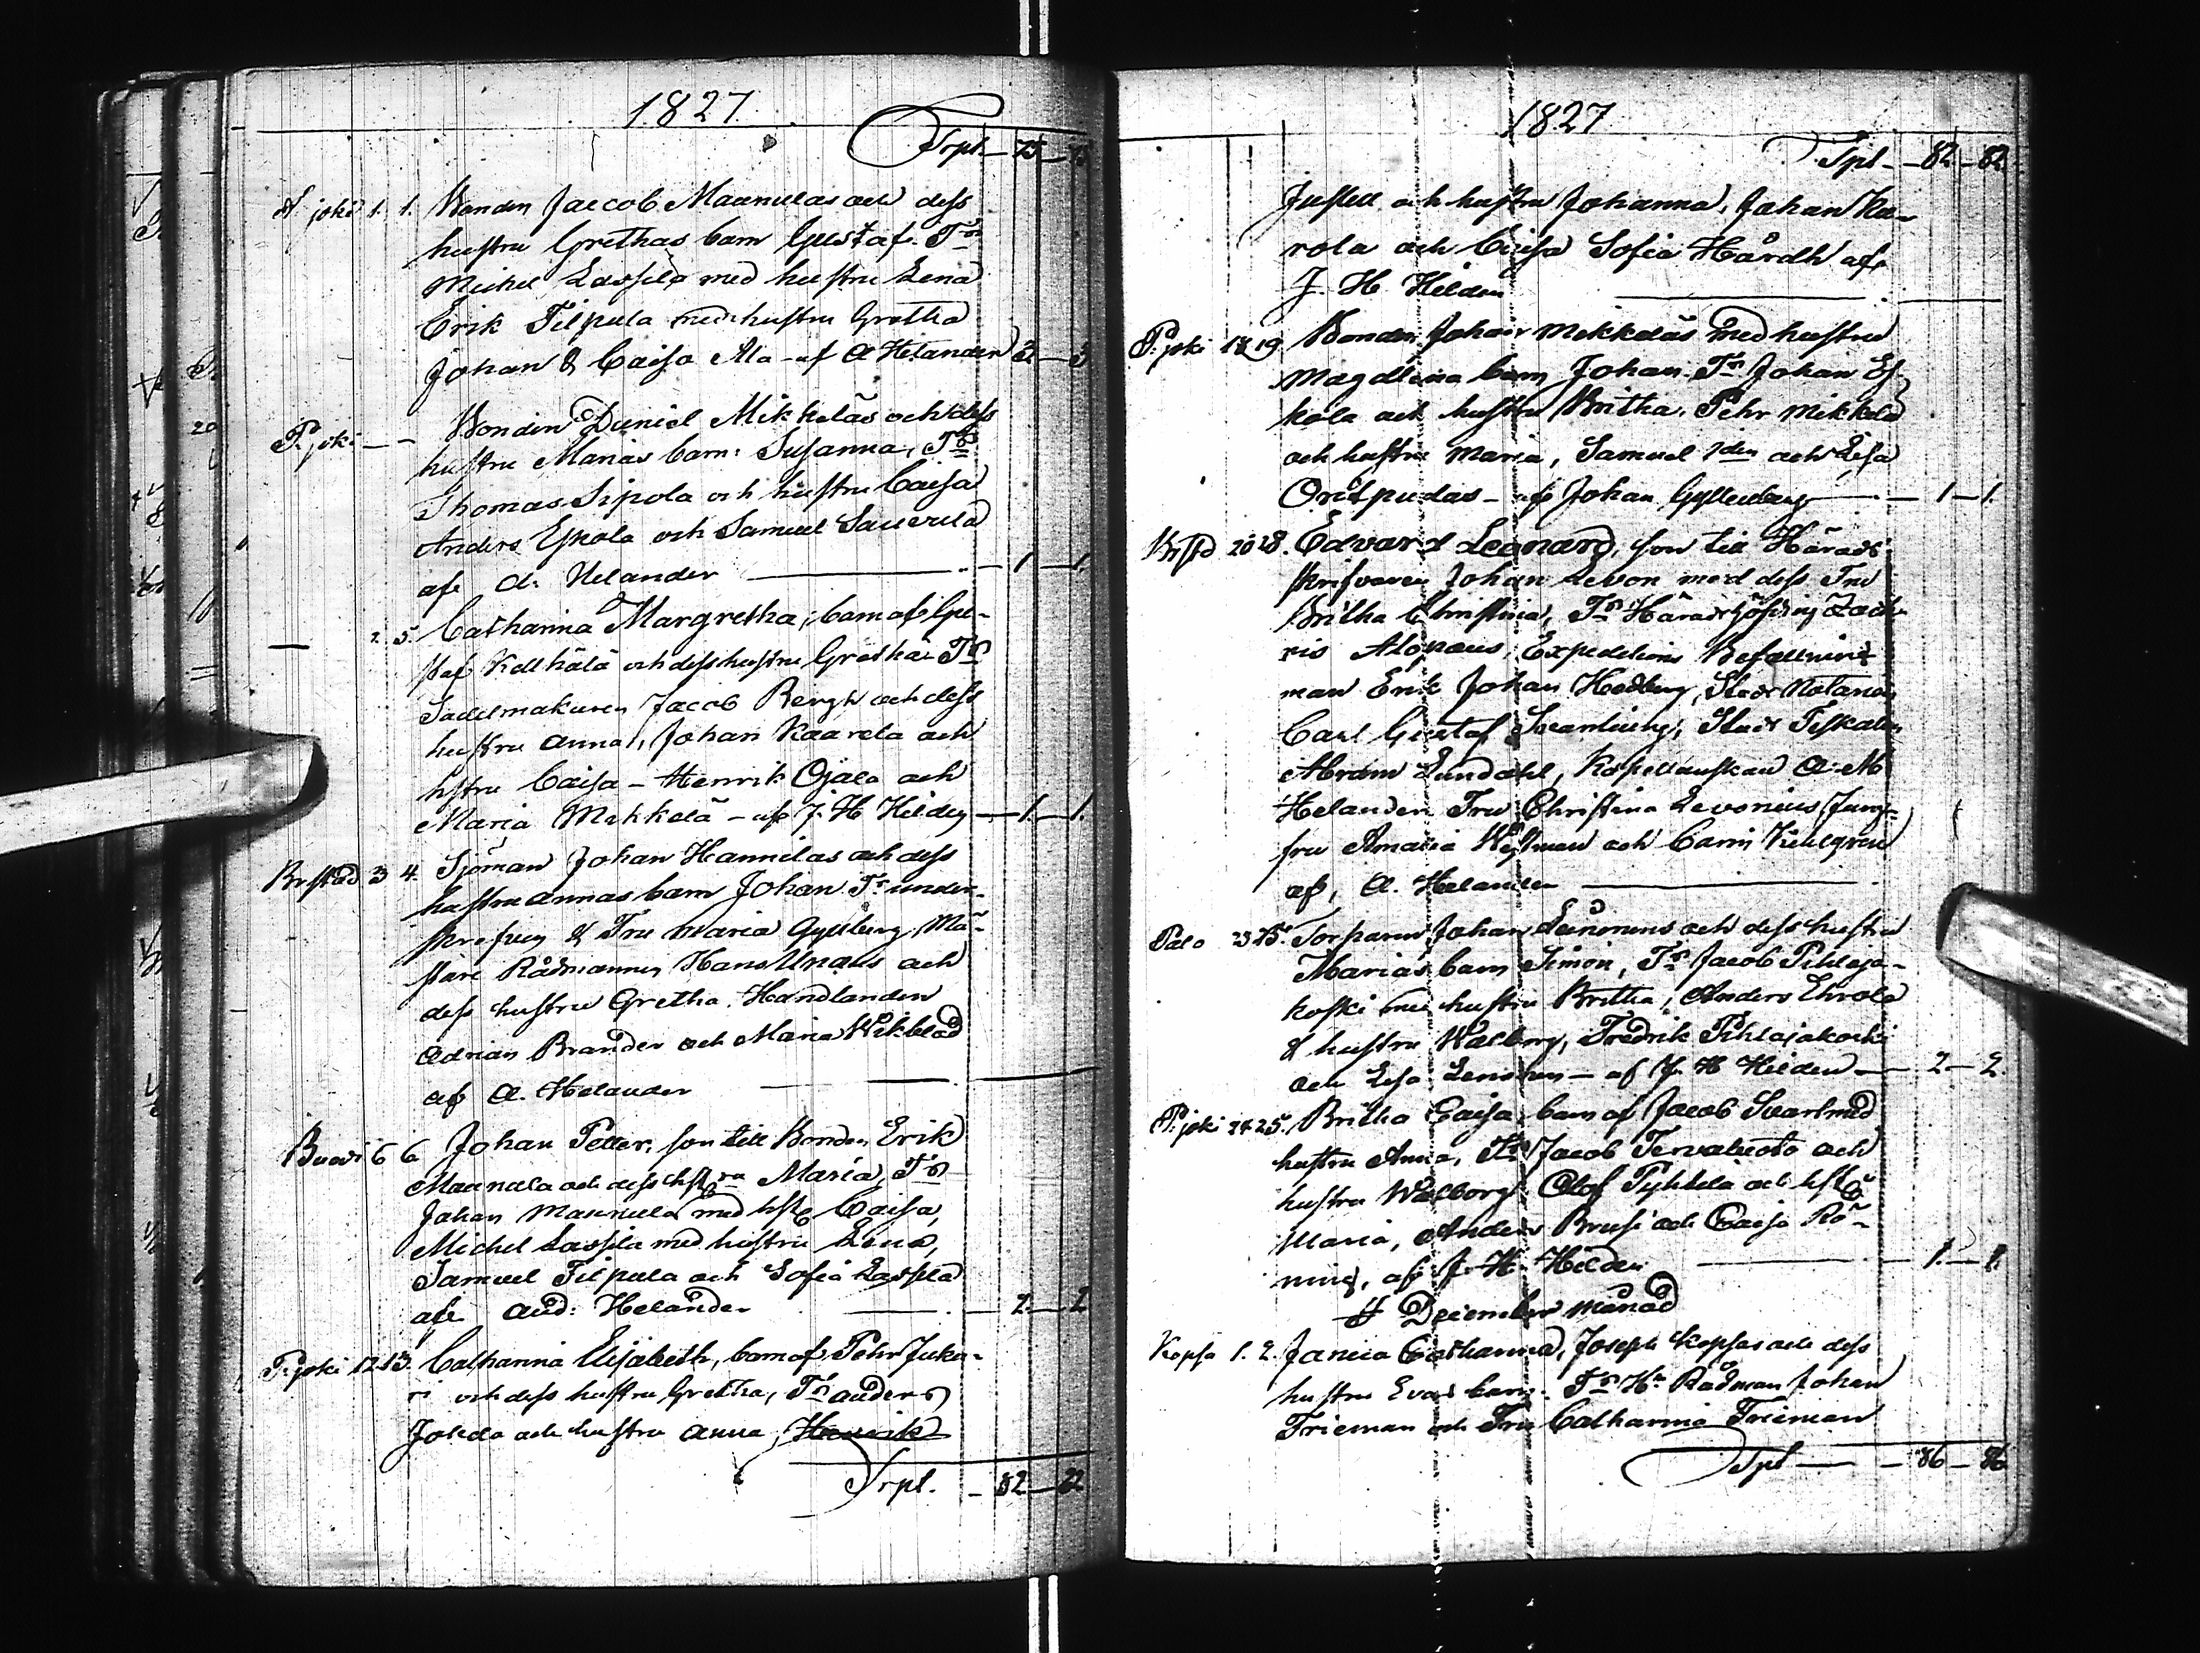 1827
Trpt. 75 75
joki 1. 1. Bonden Jaccob Maunulas och dess
hustru Grethas barn Gustaf. Tn
Michel Lassila med hustru Lena
Erik Tilpula med hustru Gretha
Johan & Caisa Ala - af A Helander 3 3
P. joki - - Bonden Daniel Mikkeläs och dess
hustru Marias barn: Susanna, Tn
Thomas Sipola och hustru Caisa
Anders Eskola och Samuel Sauvula
af A. Helander - 1 - 1
- 2. 5. Catharina Margretha, barn af Gu-
staf Kellhälä och dess hustru Gretha Tn
Sadelmakaren Jacob Bergh och dess
hustru Anna, Johan Kaarela och
hstru Caisa - Henrik Ojala och
Maria Mikkelä - af J. H. Hilden - 1. - 1.
Brstad 3 4. Sjöman Johan Hannilas och dess
hustru Annas barn Johan Tn under-
& Fru Maria Gyllberg, Mä-
stare Rådmannen Hans Unaus och
dess hustru Gretha. Handlanden
Adrian Brander och Maria Wikblad
af A. Helander
6 6 Johan Petter, son till Bonden Erik
Maunula och dess hstru Maria, Tn
Johan Maunula med hst Caisa,
Michel Lassila med hustru Lena,
Samuel Tilpula och Sofia Lassila
af And: Helander - 2 - 2
P. joki 12 13. Catharina Elisabeth, barn af Pehr Juka-
ri och dess hustru Gretha, Tn Anders
Jokela och hustru Anna, Henrik
Trpt. - 82 - 82
1827
Tpt - 82 - 82
Justell och hustru Johanna, Johan Ka-
rola och Caisa Sofia Hårdh af
J. H. Hilden
P. joki 18 19 Bonden Johan Mikkeläs med hustru
Magdlena barn Johan. Tn Johan Es-
kola och hustru Britha, Pehr Mikkelä
och hustru Maria, Samuel och Lisa
Oritpudas - af Johan Gyllenberg - 1 - 1.
Brstd 20 28. Edvard Leonard, son till Härads
skrifvaren Johan Levon med dess Fru
Britha Christina, Tn Häradshöfding Zach-
ris Alopaus, Expeditions Befallnings
man Erik Johan Hedberg, Stads Notarien
Carl Gustaf Svanljung, Stads Fiskalen
Abram Lundahl, Kapellanskan A. M
Helander Fru Christina Levonius Jung-
fru Amalia Westman och Carin Kihlgren
af, A. Helander
Palo 23 25. Torparen Johan Leinonens och dess hustru
Marias barn Simon, Tn Jacob Pihlaja-
koski med hustru Britha, Anders Ehrola
& hustru Walborg, Fredrik Pihlajakoski
och Lisa - af J. H. Hilden - 2 - 2.
P. joki 24 25. Britha Caisa barn af Jacob Svartmed
hustru Anna, Tn Jacob Tervaluoto och
hustru Walborg, Olof Pyhälä och hst
Maria, Anders Brusi och Caisa Rö-
ning, af J. H. Hilden - 1. - 1.
December månad
Kopsa 1. 2. Catharina, Joseph Kopsas och dess
hustru Evas barn. Tn Hr Rådman Johan
Frieman och Fru Catharina Frieman
Tpt - 86 - 86